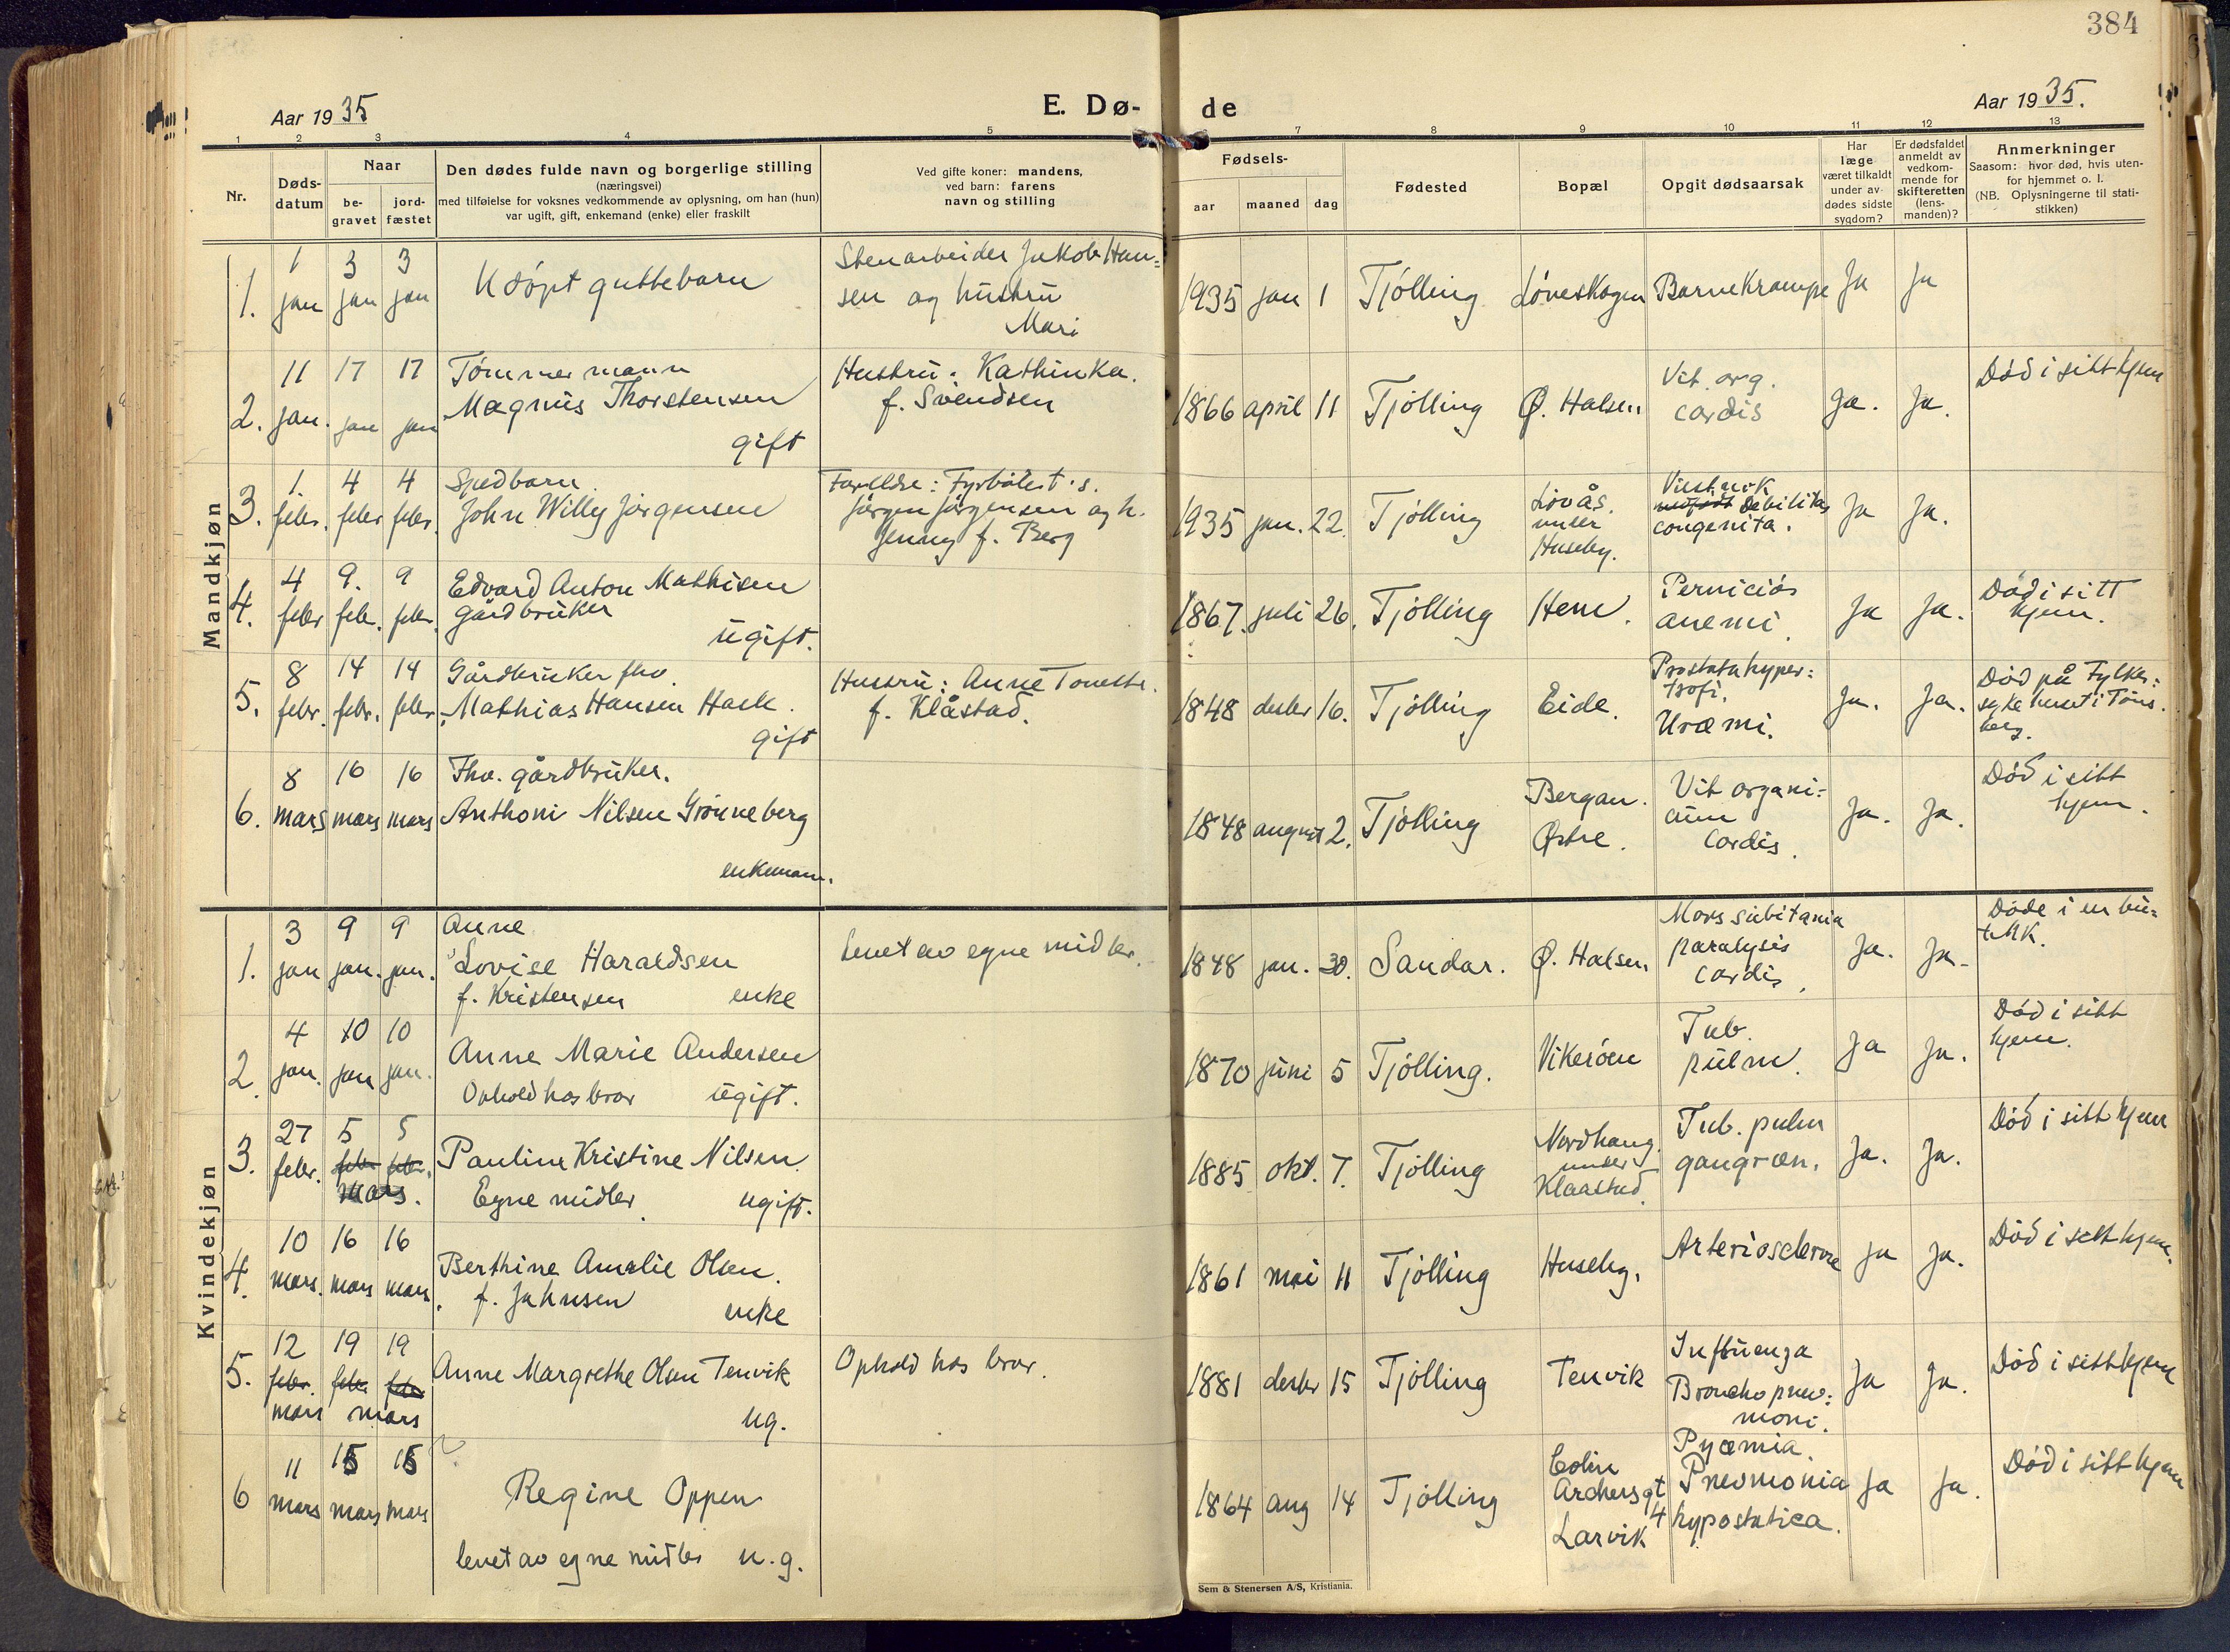 384
Aar 1935
E. Dø-
de
Aar 1935.
1 2 3 4 5 7 8 9 10 11 12 13
Nr.
Døds-
datum
Naar
be-
gravet
jord-
fæstet
Den dødes fulde navn og borgerlige stilling
(næringsvei)
med tilføielse for voksnes vedkommende av oplysning, om han (hun)
var ugift, gift, enkemand (enke) eller fraskilt
Ved gifte koner: mandens,
ved barn: farens
navn og stilling
Fødsels-
aar maaned dag
Fødested
Bopæl
Opgit dødsaarsak
Har
læge
været tilkaldt
under av-
dødes sidste
sygdom?
Er dødsfaldet
anmeldt av
vedkom-
mende for
skifteretten
(lens-
manden)?
Anmerkninger
Saasom: hvor død, hvis uten-
for hjemmet o. l.
(NB. Oplysningerne til stati-
stikken)
Mandkjøn
1.
1 jan
3 jan
3 jan
Udöpt guttebarn
Stenarbeider Jakob Han=
sen og hustru
Mari
1935 jan 1
Tjölling
Löveskogen
Barnekrampe
Ja
Ja
2.
11 jan.
17 jan
17 jan
Tömmermann
Magnus Thorstensen
gift
Hustru: Kathinka.
f. Svendsen
1866 april 11
Tjölling
Ø. Halsen
Vit. org.
cordis
Ja.
Ja.
Död i sitt hjem
3.
1. febr.
4 febr
4 febr.
Spedbarn.
John Willy Jörgensen
Foreldre: Fyrböter t.s.
Jörgen Jörgensen og h.
Jenny f. Berg
1935 jan. 22.
Tjölling
Lövås.
under
Huseby.
Viusknik
medfödt Debilitas
congenita.
Ja
Ja.
4.
4 febr
9. feb.
9 febr.
Edvard Anton Mathisen
gårdbruker
ugift.
1867. juli 26.
Tjölling
Hem.
Perniciös
anemi.
Ja
Ja.
Död i sitt
hjem.
5.
8 febr.
14 febr.
14 febr.
Gårdbruker fhv.
Mathias Hansen Hask.
gift
Hustru: Anne Tonette.
f. Klåstad.
1848 desbr 16.
Tjölling
Eide.
Prostatahyper=
trofi.
Uræmi.
Ja.
Ja.
Död på Fylkes=
sykehuset i Töns=
berg.
6.
8 mars
16 mars
16 mars
Fhv. gårdbruker.
Anthoni Nilsen Grönneberg
enkemann.
1848 august 2.
Tjölling
Bergan.
Østre.
Vit organi=
cum
cordis.
Ja.
Ja.
Död i sitt
hjem.
Kvindekjøn
1.
3 jan
9 jan.
9 jan.
Anne
Lovise Haraldsen
f. Kristensen enke
Levet av egne midler.
1848 jan. 30.
Sandar.
Ø. Halsen
Mors subitania
paralysis
cordis.
Ja.
Ja.
Döde i en bu=
tikk.
2.
4 jan.
10 jan
10 jan.
Anne Marie Andersen
Ophold hos bror ugift.
1870 juni 5
Tjölling.
Vikeröen
Tub.
pulm.
Ja
Ja.
Död i sitt
hjem.
3.
27 febr.
5 febr mars.
5 febr.
Pauline Kristine Nilsen.
Egne midler. ugift.
1885 okt. 7.
Tjölling
Nordhaug.
under
Klaastad.
Tub. pulm
gangræn.
Ja.
Ja.
Död i sitt hjem
4.
10 mars.
16 mars
16 mars.
Berthine Amalie Olsen.
f. Jahnsen
enke
1861 mai 11
Tjölling
Huseby.
Arteriosclerose
Ja
Ja.
Död i sitt hjem.
5.
12 febr. mars
19 febr. mars
19 febr
Anne Margrethe Olsen Tenvik
ug.
Ophold hos bror.
1881 desbr 15
Tjölling
Tenvik
Influenza
Bronchopneu=
moni.
Ja
Ja.
Död i sitt hjem
6
11 mars
15 mars
15 mars
Regine Oppen
levet av egne midler u.g.
1864 aug 14
Tjölling
Colin
Archersgt
4
Larvik
Pyæmia.
Pneumonia
hypostatica.
Ja
Ja.
Död i sitt hjem
Sem & Stenersen A/S, Kristiania.